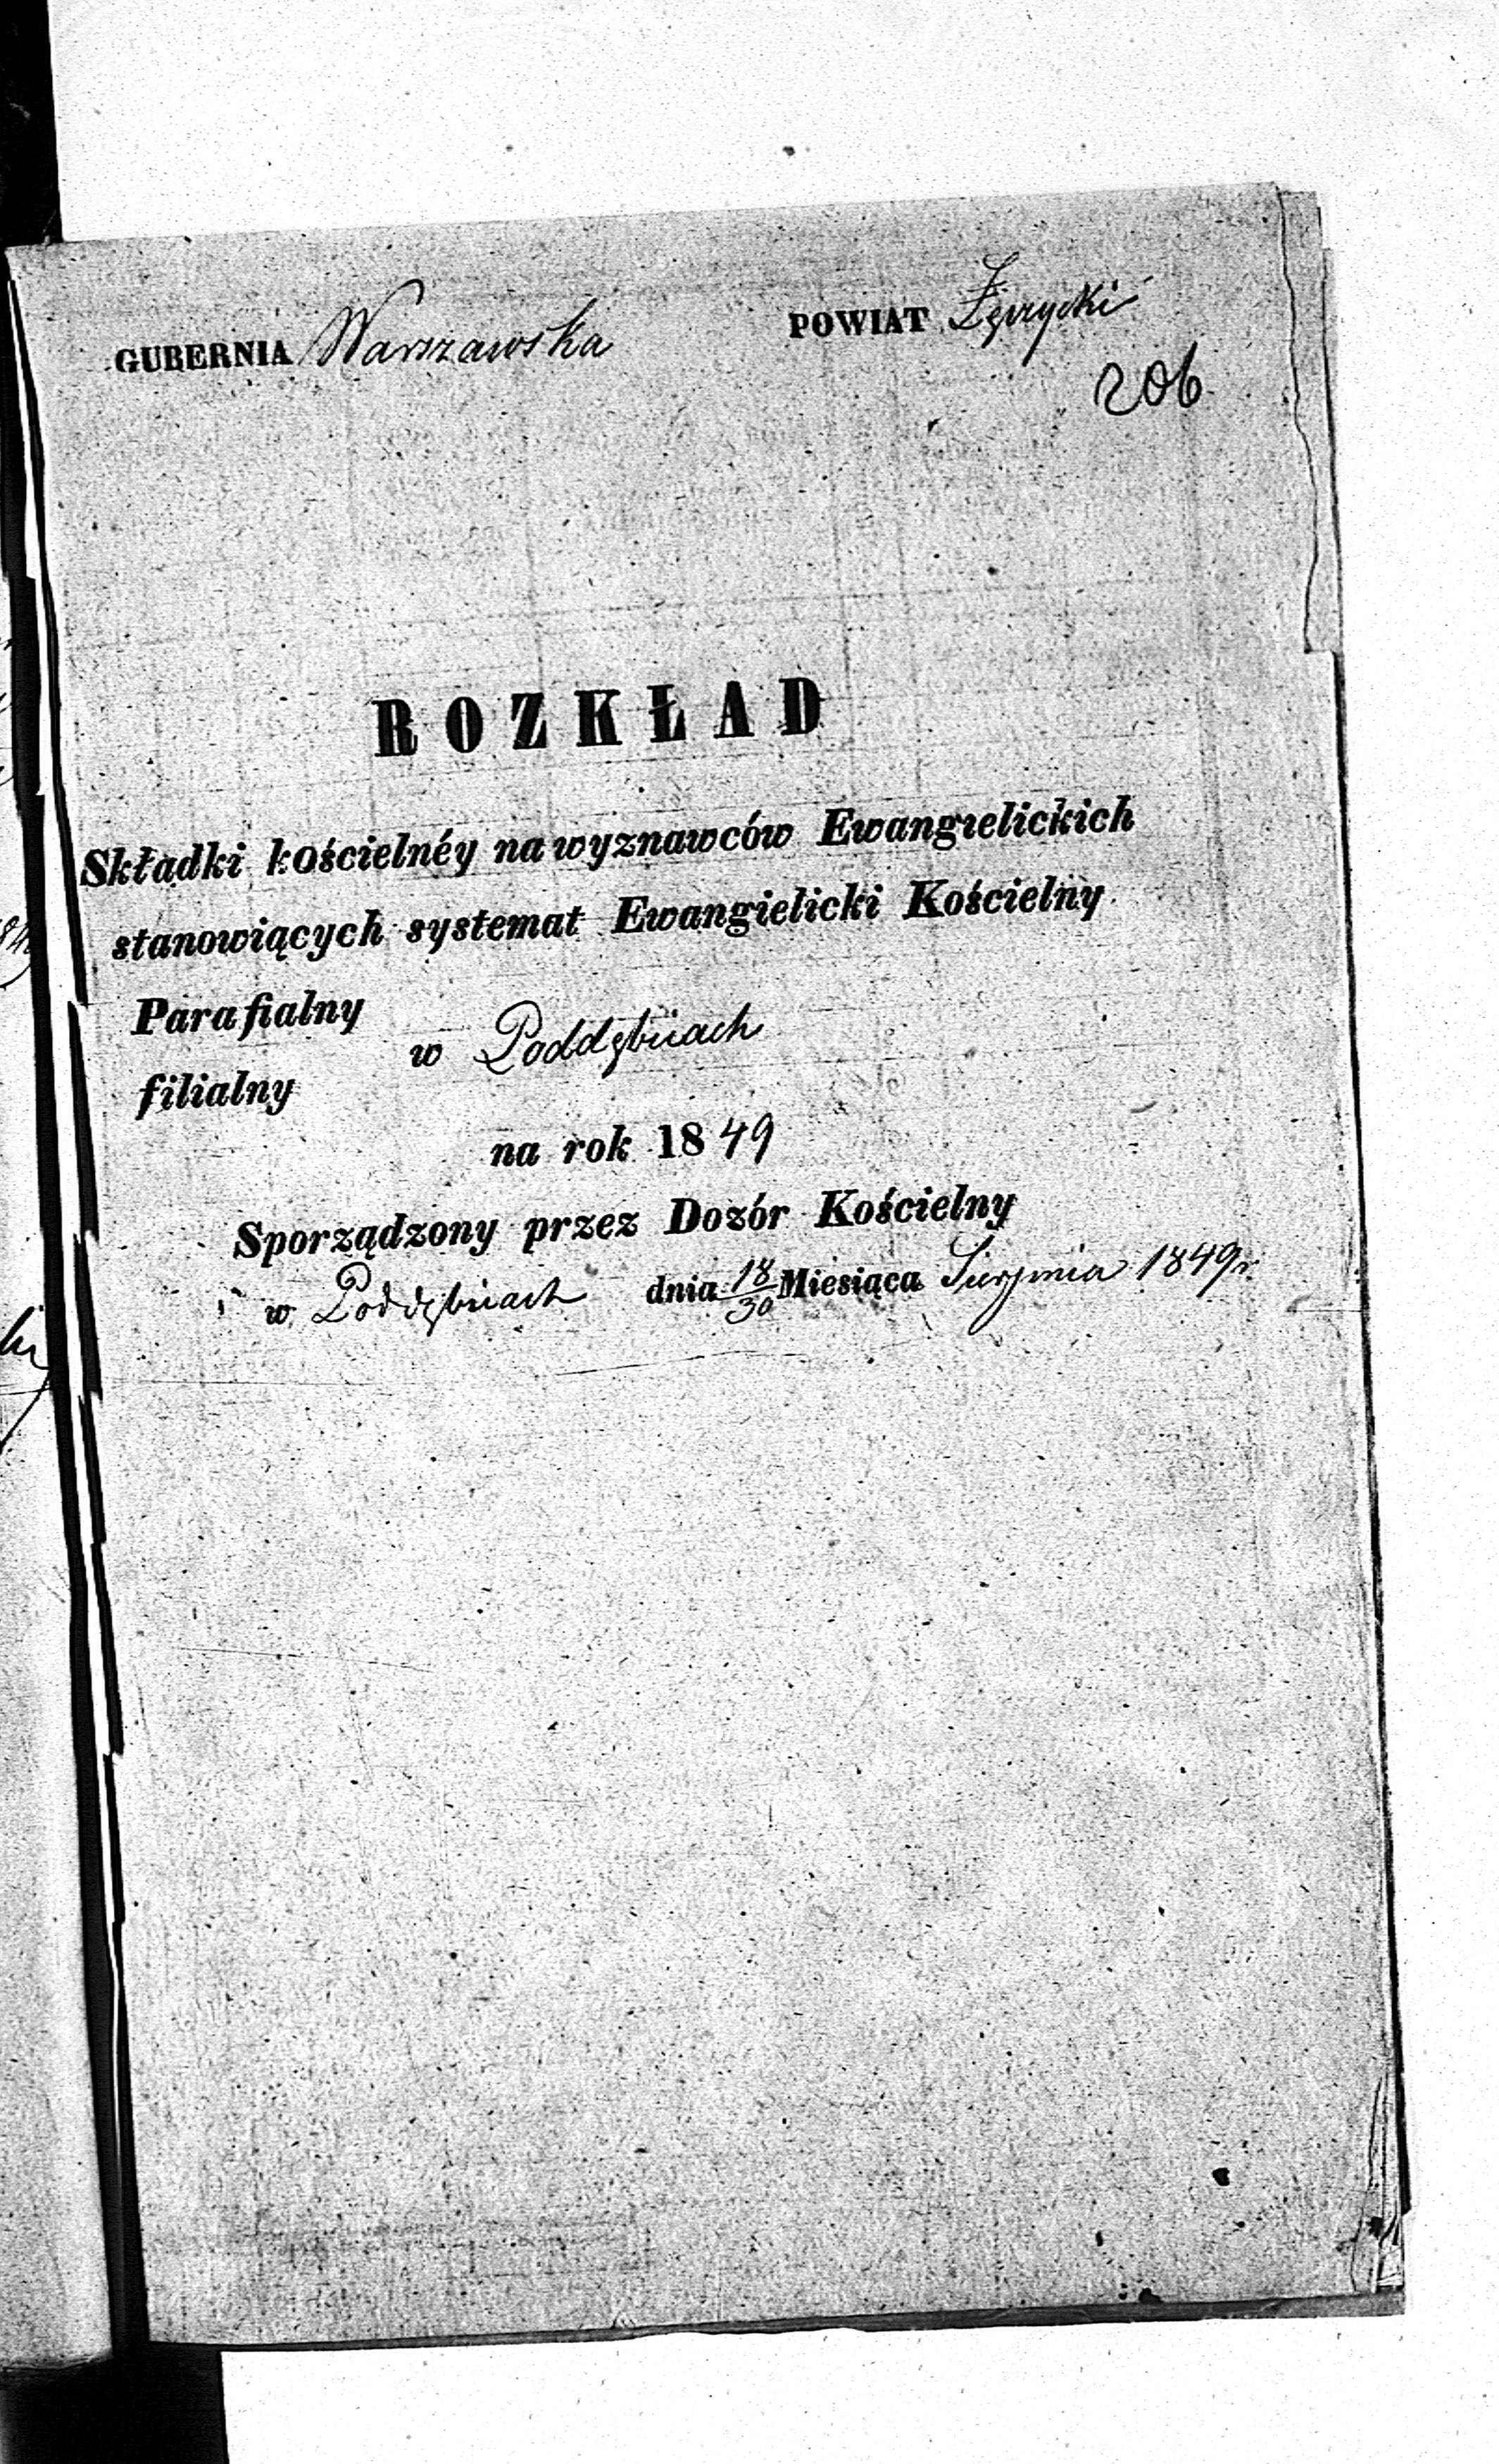 GUBERNIA Warszawska POWIAT Łęczycki
206
ROZKŁAD
Składki kościelnéy na wyznawców Ewangielickich
stanowiących systemat Ewangielicki Kościelny
Parafialny
w Poddębicach
filialny
na rok 1849
Sporządzony przez Dozór Kościelny
w Poddębicach dnia 18/30 Miesiąca Sierpnia 1849 r.